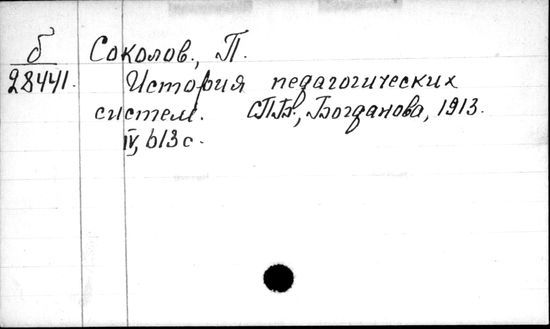 б Соколов., П.
28441. История педагогических
систем. СПБ., Богданова, 1913.
IV, 613 с.